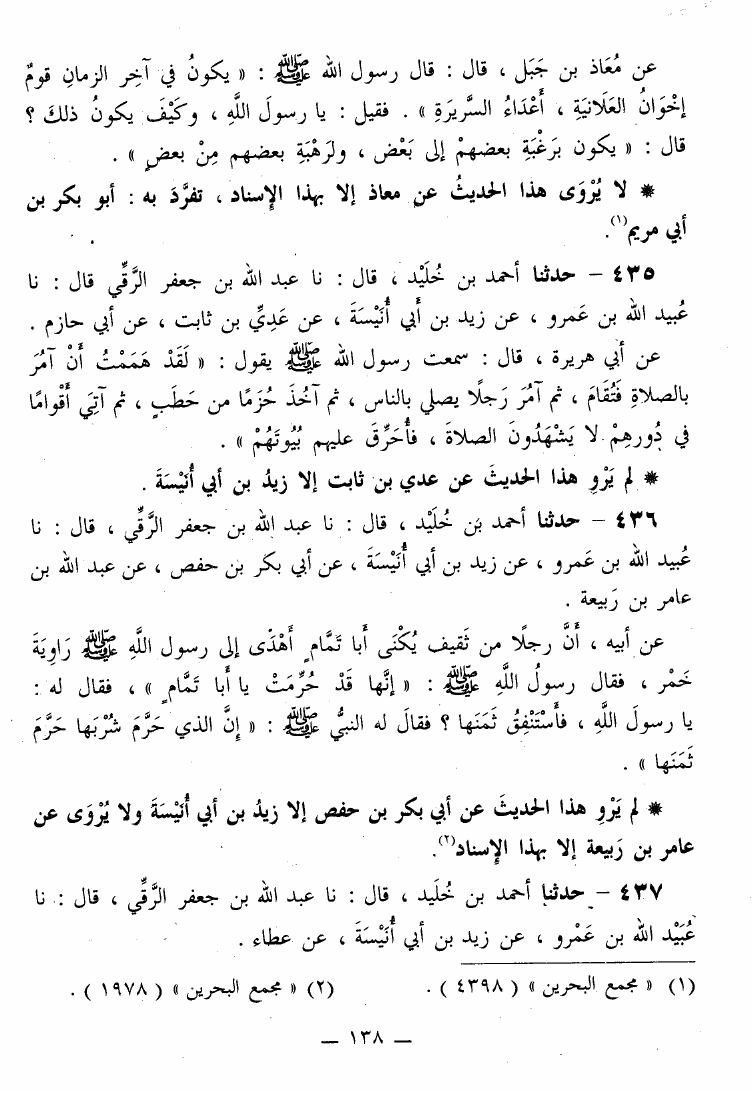 عن مُعَاذ بن جَبَل ، قال : قال رسول الله ﷺ : « يكونُ في آخِر الزمانِ قومٌ
إخْوَانُ العَلَانيَةِ ، أَعْدَاءُ السَّريرَةِ » . فقيل : يا رسولَ اللَّهِ ، وكَيْفَ يكونُ ذلكَ ؟
قال : « يكون برَغْبَةِ بعضهمْ إلى بَعْض ، ولرَهْبَةِ بعضهم مِنْ بعضٍ » .
* لا يُرْوَى هذا الحديثُ عن معاذ إلا بهذا الإسناد ، تفرَّدَ به : أبو بكر بن
أبي مريم(١).
٤٣٥ – حدثنا أحمد بن خُلَيْد ، قال : نا عبد الله بن جعفر الرَّقِّي قال : نا
عُبيد الله بن عَمرو ، عن زيد بن أَبي أُنَيْسَةَ ، عن عَدِيِّ بن ثابت ، عن أبي حازم .
عن أبي هريرة ، قال : سمعت رسول الله ﷺ يقول : « لَقَدْ هَمَمْتُ أَنْ آمُرَ
بالصلاةِ فَتُقَامَ ، ثم آمُرَ رَجلًا يصلي بالناس ، ثم آخُذَ حُزَمًا من حَطَبٍ ، ثم آتِيَ أَقْوامًا
في دُورهِمْ لا يَشْهَدُونَ الصلاةَ ، فأُحَرِّقَ عليهم بُيُوتَهُمْ » .
* لم يَرْوِ هذا الحديثَ عن عدي بن ثابت إلا زيدُ بن أبي أُنَيْسَةَ .
٤٣٦ – حدثنا أحمد بن خُلَيْد ، قال : نا عبد الله بن جعفر الرَّقِّي ، قال : نا
عُبيد الله بن عَمرو ، عن زيد بن أبي أُنَيْسَةَ ، عن أبي بكر بن حفص ، عن عبد الله بن
عامر بن رَبيعة .
عن أبيه ، أَنَّ رجلًا من ثَقيف يُكْنَى أَبا تَمَّامٍ أَهْدَى إلى رسول اللَّهِ ﷺ رَاوِيَةَ
خَمْر ، فقال رسولُ اللَّهِ ﷺ : « إنَّها قَدْ حُرِّمَتْ يا أَبا تَمَّامٍ » ، فقال له :
يا رسولَ اللَّهِ ، فأَسْتَنْفِقُ ثَمَنَها ؟ فقالَ له النبيُّ ﷺ : « إنَّ الذي حَرَّمَ شُرْبَها حَرَّمَ
ثَمَنَها » .
* لم يَرْوِ هذا الحديثَ عن أبي بكر بن حفص إلا زيدُ بن أبي أُنَيْسَةَ ولا يُرْوَى عن
عامر بن رَبيعة إلا بهذا الإسناد(٢).
٤٣٧ – حدثنا أحمد بن خُلَيد ، قال : نا عبد الله بن جعفر الرَّقِّي ، قال : نا
عُبَيْد الله بن عَمْرو ، عن زيد بن أبي أُنَيْسَةَ ، عن عطاء .
(١) « مجمع البحرين » ( ٤٣٩٨ ) . (٢) « مجمع البحرين » ( ١٩٧٨ ) .
— ١٣٨ —